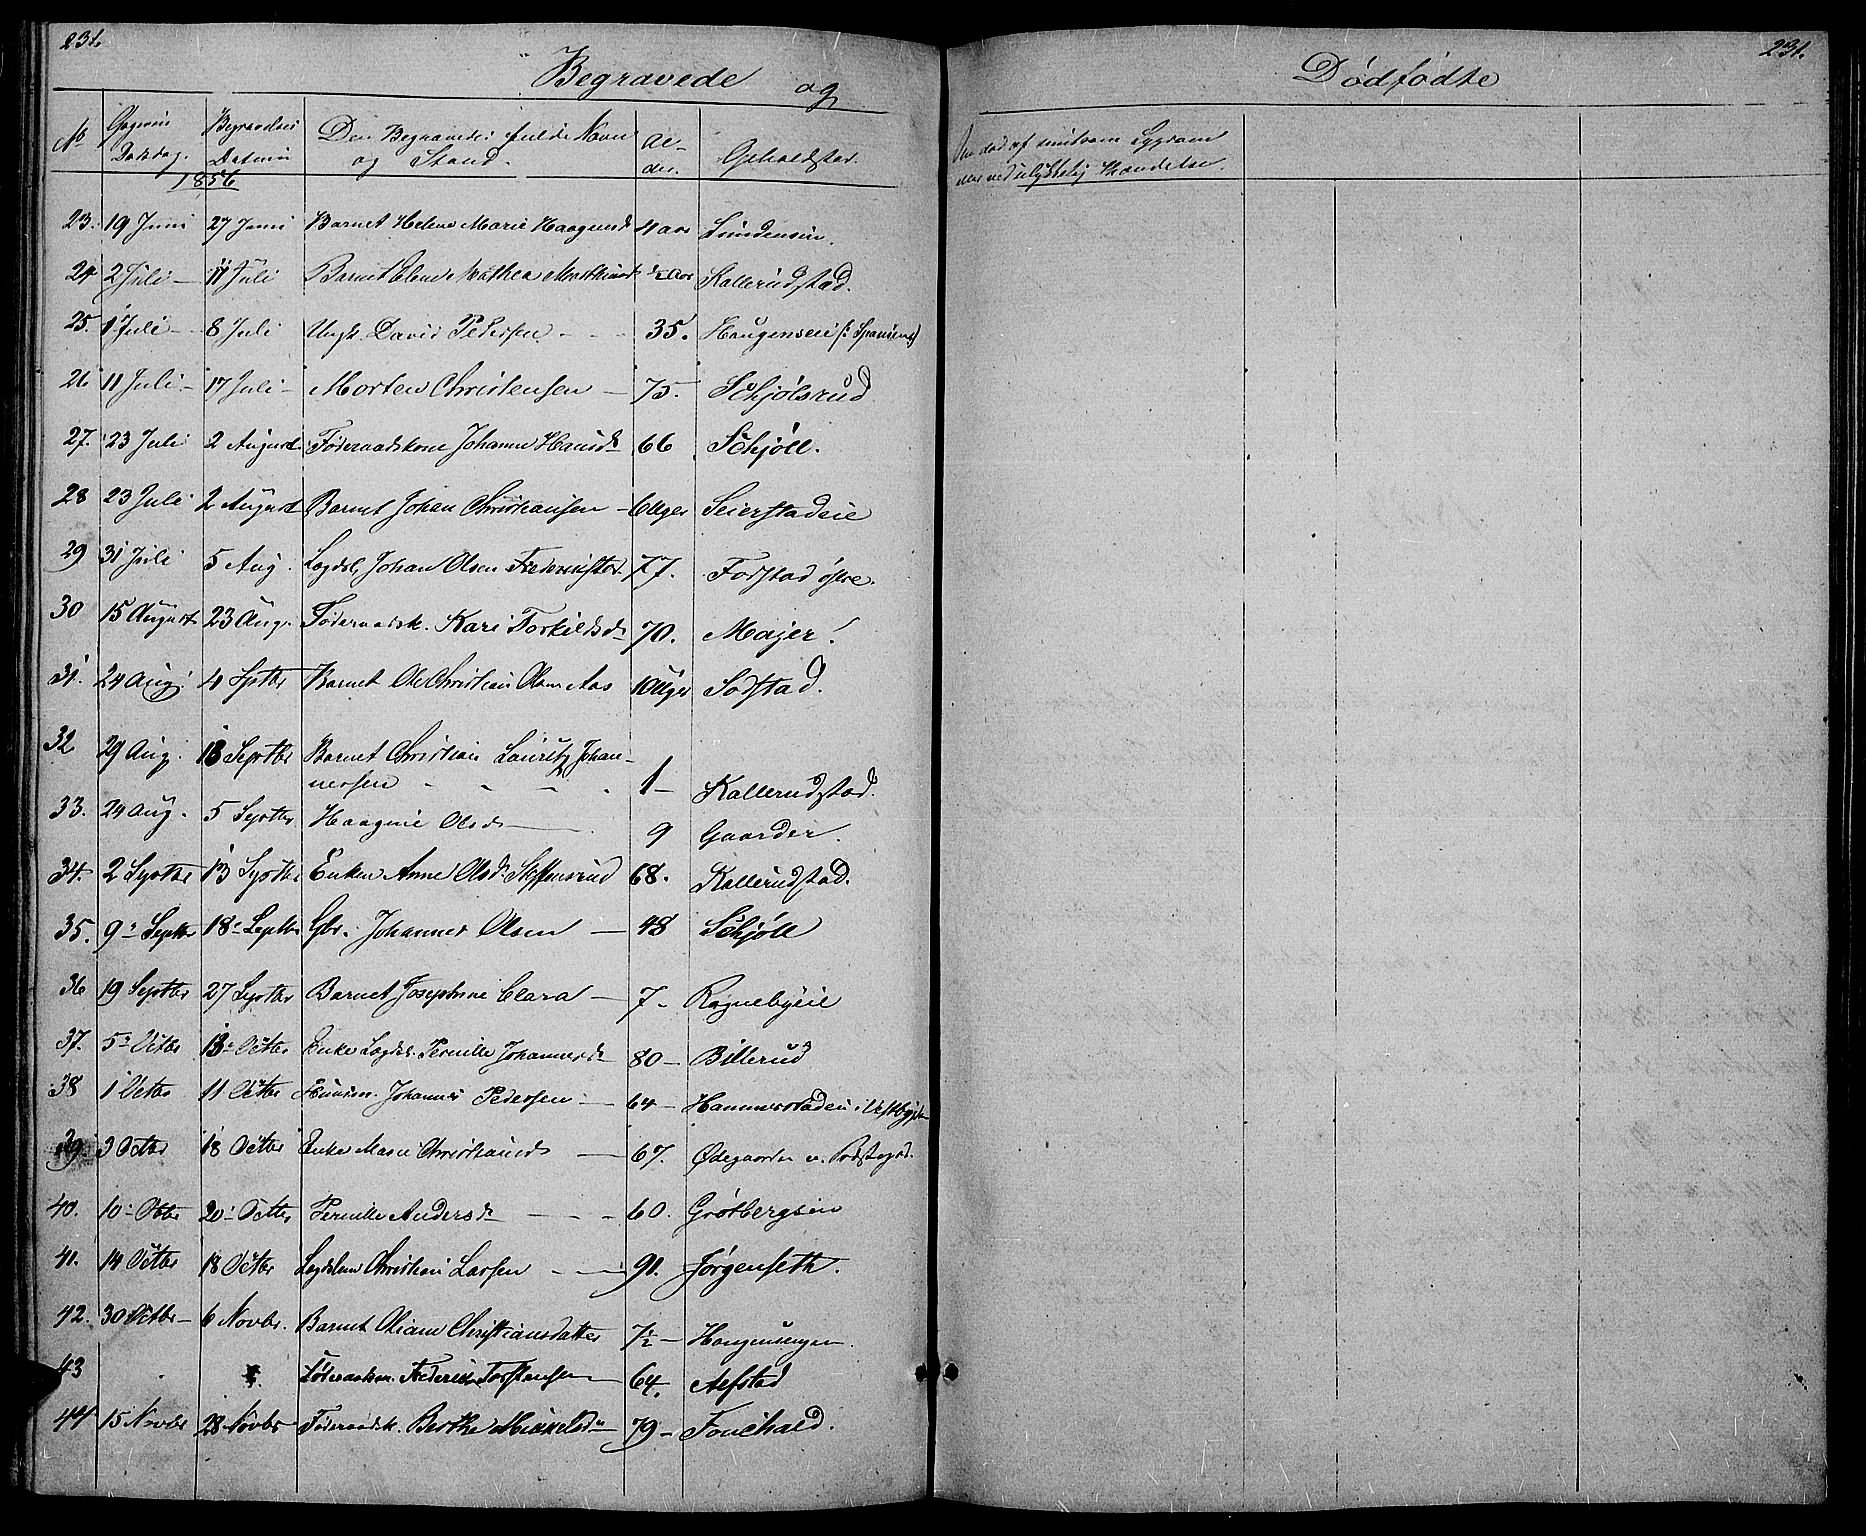 231.
Begravede og
No Dødsdag. Begravelses Datum Den Begravedes fulde Navn og Stand. Al- der. Opholdsted.
1856
23. 19 Juni 27 Juni Barnet Helene Marie Haagensd 4 aar
24 2 Juli — 11 Juli Barnet Mathea Kallerudstad.
25. 1 Juli — 8 Juli Ungk. David Pedersen - - - 35. Haugenseie
26 11 Juli — 17 Juli — Morten Christensen — 75. Schjølsrud
27. 23 Juli 2 August Føderaadskone Johanne Hansd 66 Schjøll.
28 23 Juli 2 August Barnet Johan Christiansen — 6 Uger Seierstadeie
29 31 Juli 5 Aug. Logdsl. Johan Olsen Frederikstad. 77. Fodstad østre.
30 15 August 23 Aug. Føderaadsk. Kari Torkildsd 70. Majer.
31. 24 Aug. 4 Sptbr Barnet Ole Christian Olsen Aas 10 Uger Sodstad.
32 29 Aug. 13 Septbr Barnet Christian Lauritz Johan-
nessen - - - - 1 — Kallerudstad.
33. 24 Aug. 5 Septbr Haagine Olsd — 9 Gaarder.
34. 2 Septbr 13 Septbr Enken Anne Olsd. Steffensrud 68. Kallerudstad.
35. 9 Septbr 18 Septbr Gbr. Johannes Olsen — 48 Schjøll
36 19 Septbr 27 Septbr Barnet Josephine Clara — 7 - Rognebyeie
37. 5 Octbr 13 Octbr Enke Logdsl. Pernille Johannesd 80 — Billerud
38 1 Octbr 11 Octbr Huusm. Johannes Pedersen — 64 — i Vestby
39. 3 Octbr 18 Octbr Enke Marie Christiansd — 67. Ødegaarden
40. 10 Octbr 20 Octbr Pernille Andersd - - - 60. Grøtbergseie
41. 14 Octbr 18 Octbr Logdslem Christian Larsen — 91. Jørgenseth.
42. 30 Octbr — 6 Novbr. Barnet Oliane Christiansdatter 7½ — Haugensengen.
43 Torstensen — 64. Aefstad
44 15 Novbr 28 Novbr Føderaadsk. Berthe Mikkelsd 79 —
231.
Dødfødte
Om død af smitsom Sygdom
eller ved ulykkelig Hændelse.